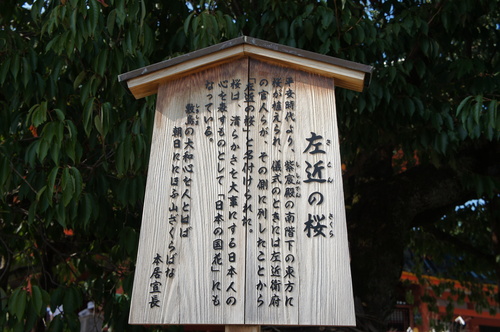 左近の桜
さこん
さくら
平安時代より、紫宸殿の南階下の東方に
ししんでん
桜が植えられ、儀式のときには左近衛府
の官人らが、その側に列したことから
「左近の桜」と名付けられた。
桜は、清らかさを大事にする日本人の
心を表すものとして「日本の国花」にも
なっている。
敷島の大和心を人とはば
朝日ににほふ山ざくらばな
本居宣長